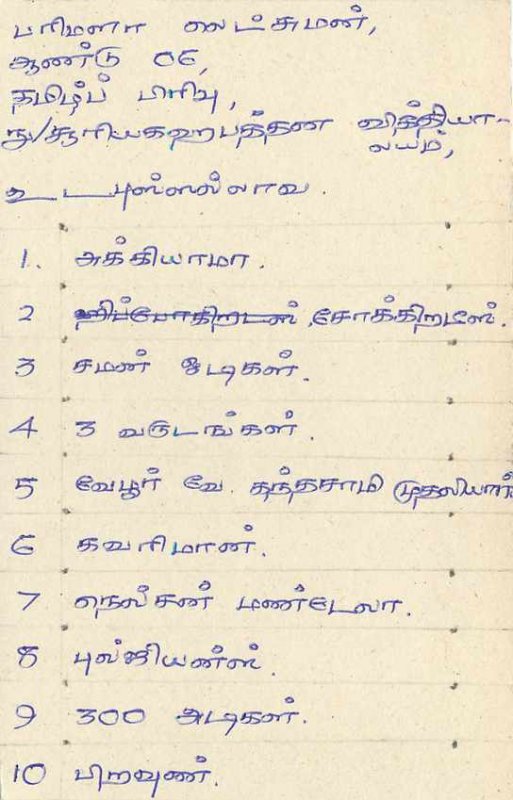 பரிமளா லைட்சுமன்,
ஆண்டு 06,
தமிழ்ப் பிரிவு,
நு/சூரியகஹபத்தன வித்தியா-
லயம்,
உடபுஸ்ஸல்லாவ.
1. அக்கியாமா.
2 ஹிப்போகிறடஸ் சோக்கிறடீஸ்.
3 சமன் ஓடிகள்.
4 3 வருடங்கள்.
5 வேயூர் வே. கந்தசாமி முதலியார்
6 கவரிமான்.
7 நெல்சன் மண்டேலா.
8 புல்ஜியன்ஸ்.
9 300 அடிகள்.
10 பிறவுண்.